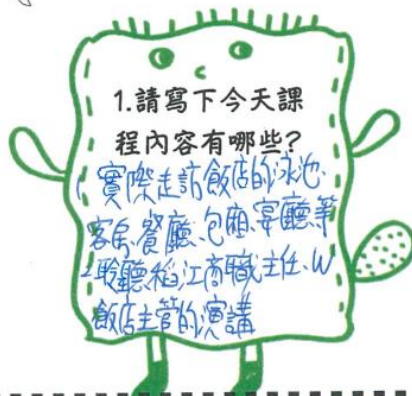 1.請寫下今天課
程內容有哪些?
1.實際走訪飯店的泳池、
客房、餐廳、包廂、宴廳等
2.聆聽稻江商職主任、W
飯店主管的演講